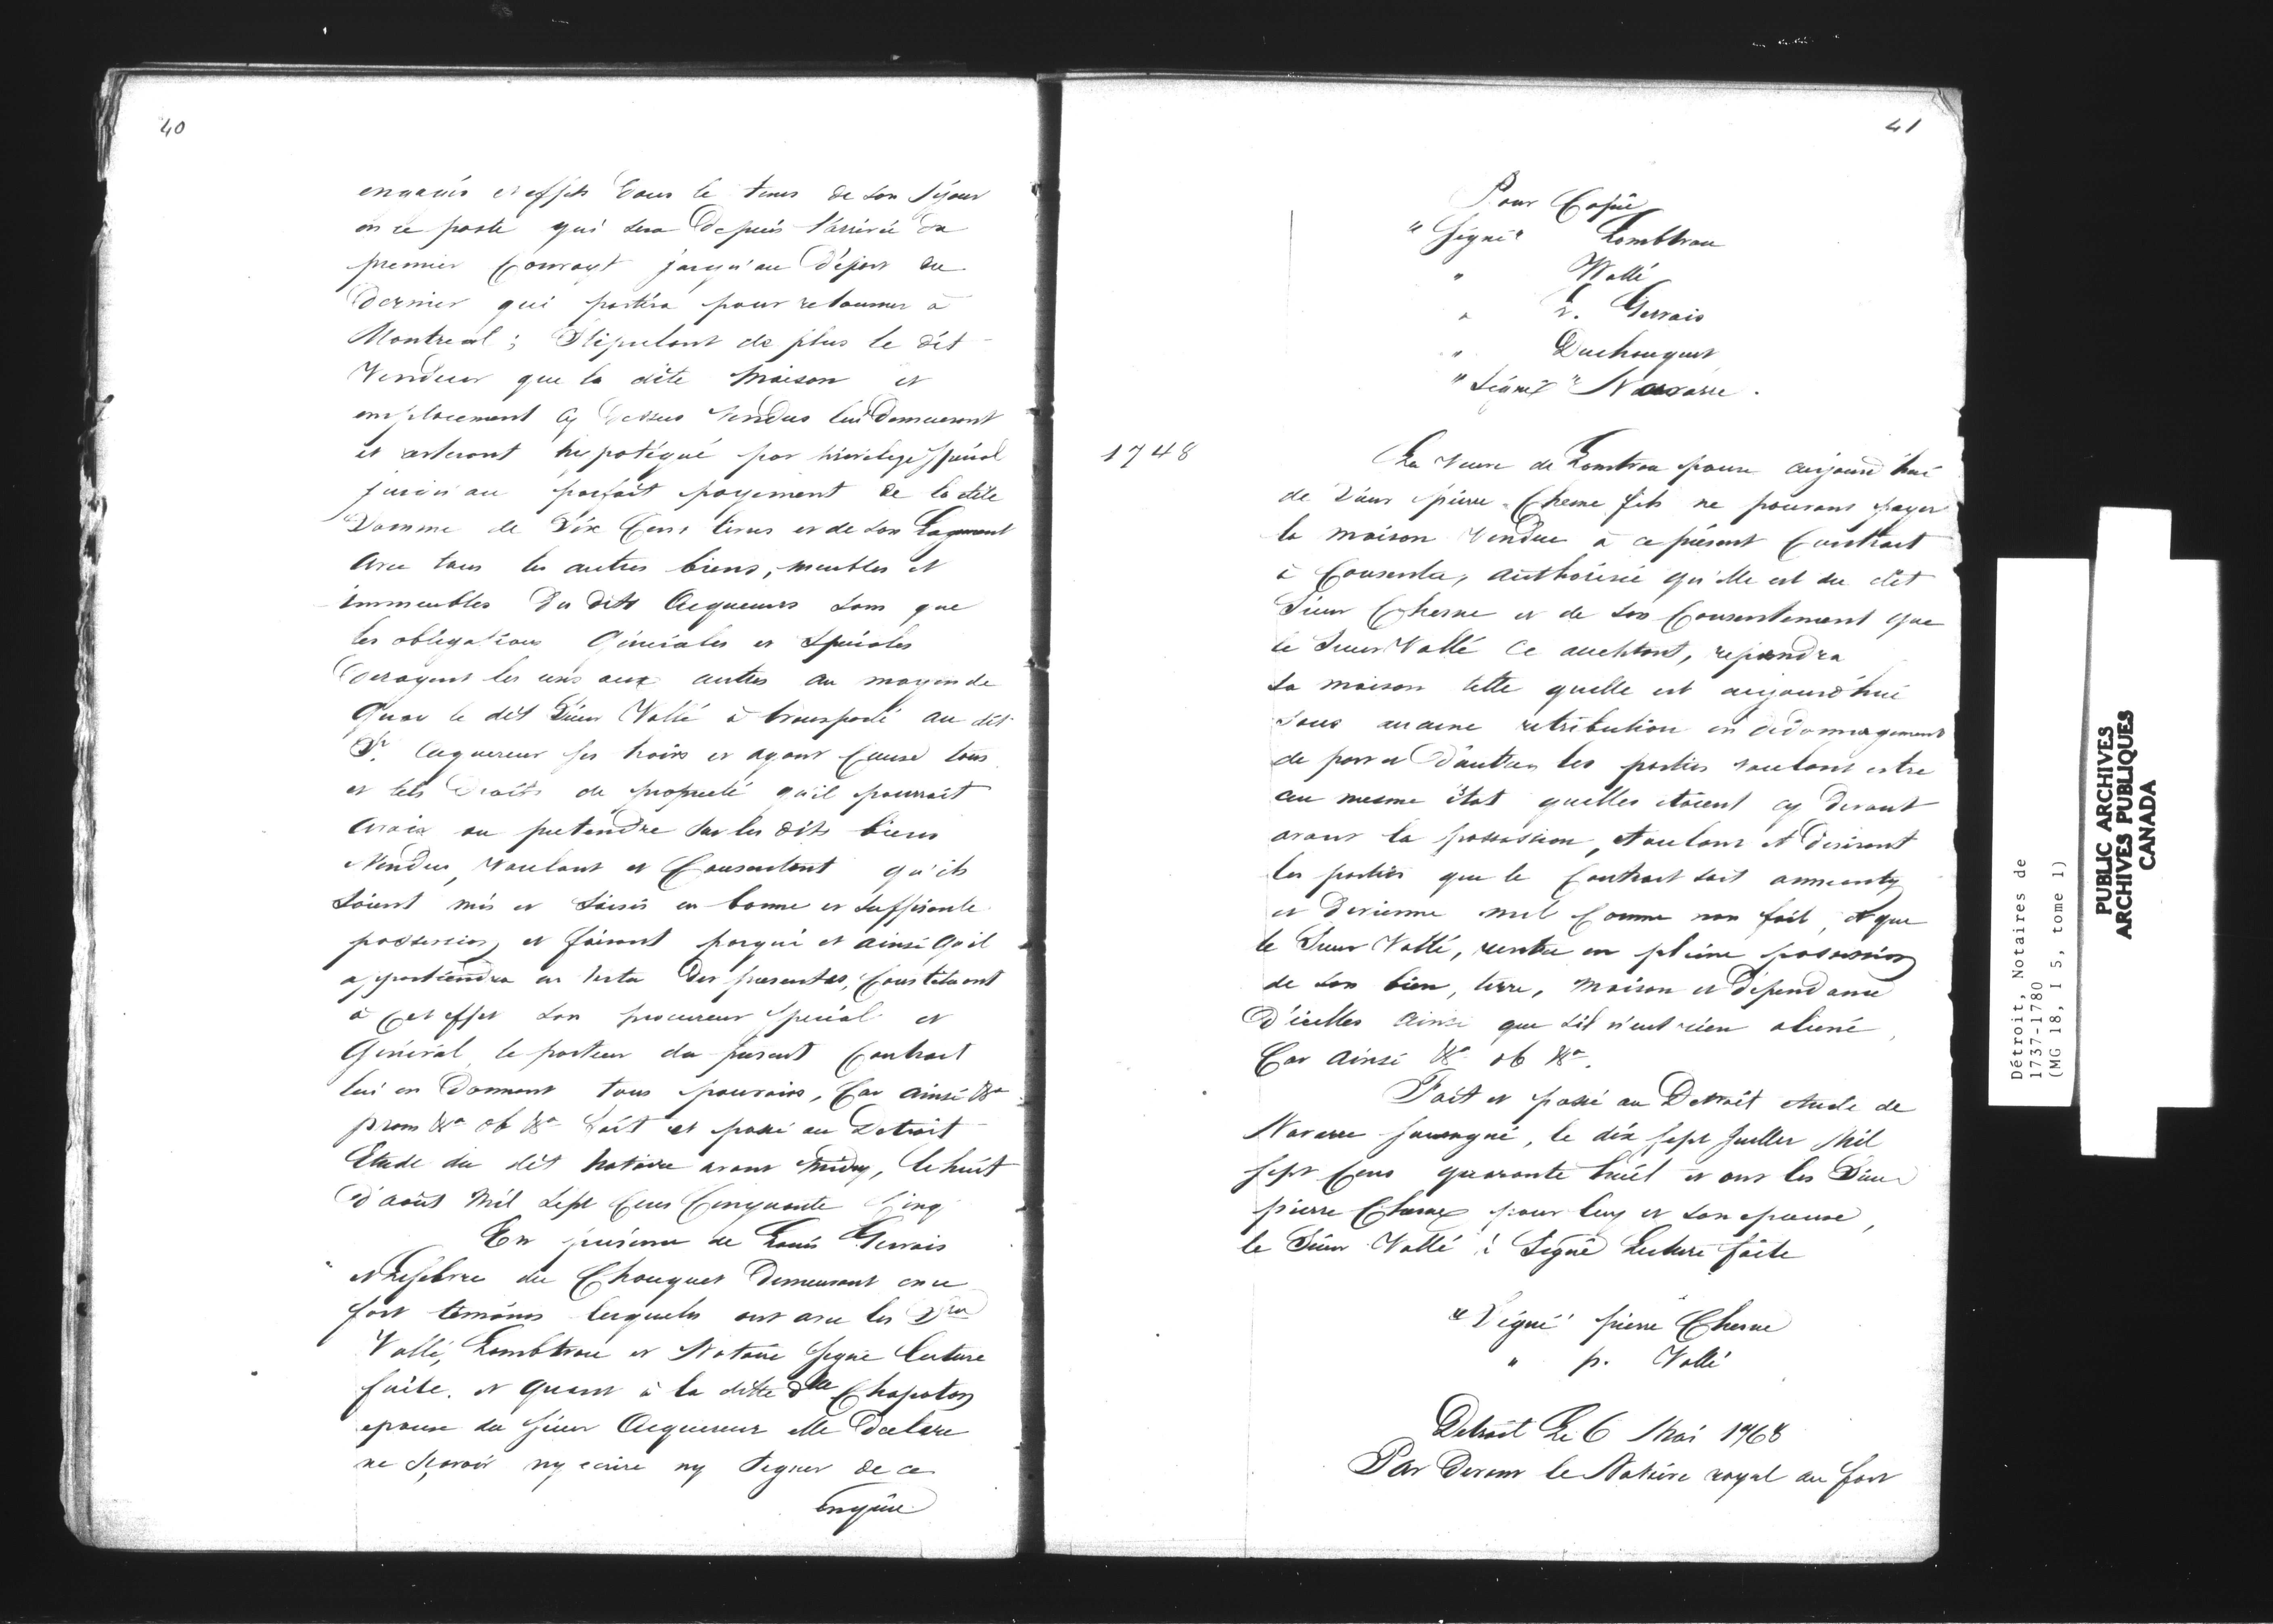 40
engagés et effets dans le tems de son Séjour
en ce poste qui sera Depuis l'arrivée du
premier Convoyt jusqu'au Départ du
Dernier qui partira pour retourner à
Montreal; Stipulant de plus le dit
Vendeur que la dite Maison et
emplacement cy dessus Vendus lui Demeureront
et resteront hipotéqué par privilege Spécial
jusqu'au parfait payement de la dite
Somme de Dix Cens livres et de son Logement
Avec tous les autres biens, meubles et
immeubles Du dits Acquereurs sans que
les obligations Générales et Spéciales
Derogent les uns aux autres au moyen de
Quoy le dit Sieur Vallé à transporté au dit
Sr. Acquereur ses hoirs et ayant Cause tous
et tels Droits de propriété qu'il pourroit
Avoir ou pretendre sur les dits biens
Vendus, Voulant et Consentant qu'ils
Soient mis et Saisis en bonne et Suffisante
possession, et faisant par qui et ainsi qu'il
appartiendra en Vertu Des presentes, Constituant
à Cet effet son procureur Special et
Général le porteur du present Contrait
lui en Donnant tous pouvoirs, Car ainsi &a
prom &a ob &a fait et passé au Detroit
Etude du dit Notaire avant Midy, le huit
D'août Mil Sept Cens Cinquante Cinq
En présence de Louis Gervais
et Lefebvre du Chouquet Demeurant en ce
fort témoins lesquels ont avec les Srs
Vallé, Lombtrou et Notaire Signé lecture
faite. et Quant à la ditte dlle Chapoton
epouse du Sieur Acquereur elle Declare
ne Sçavoir ny ecrire ny Signer de ce
enquise
41
Pour Copie
"Signé" Lombtrou
" Vallé
" L. Gervais
" Duchouquet
"Signé" Navarre.
1748
La Veuve de Lomtrou épouse aujourd'hui
de Sieur pierre Chesne fils ne pouvant payer
la maison Vendue à ce présent Contrait
à Consentu, authorisée qu'elle est du dit
Sieur Chesne et de son Consentement que
le Sieur Vallé Ce acceptant, reprendra
sa maison telle quelle est aujourd'hui
sans aucune retribution ni dédommagement
de part et D'autre les parties voulant estre
au mesme état quelles étoient cy Devant
avant la possession, Voulant et Desirant
les parties que le Contrait soit anneanty
et Devienne nul Comme non fait, et que
le Sieur Vallé, rentre en pleine possession
de son bien, terre, Maison et dépendance
D'icelles Ainsi que s'il n'eut rien aliené,
Car Ainsi &a ob &a.
Fait et passé au Detroit etude de
Navarre soussigné, le dix sept Juillet Mil
sept Cens quarante huit et ont les Sieur
pierre Chesne pour luy et son epouse,
le Sieur Vallé : Signé Lecture faite
"Signé" pierre Chesne
" p. Vallé
Detroit Le 6 Mai 1768
Par Devant le Notaire royal au fort
Détroit, Notaires de
1737-1780
(MG 18, I 5, tome 1)
PUBLIC ARCHIVES
ARCHIVES PUBLIQUES
CANADA